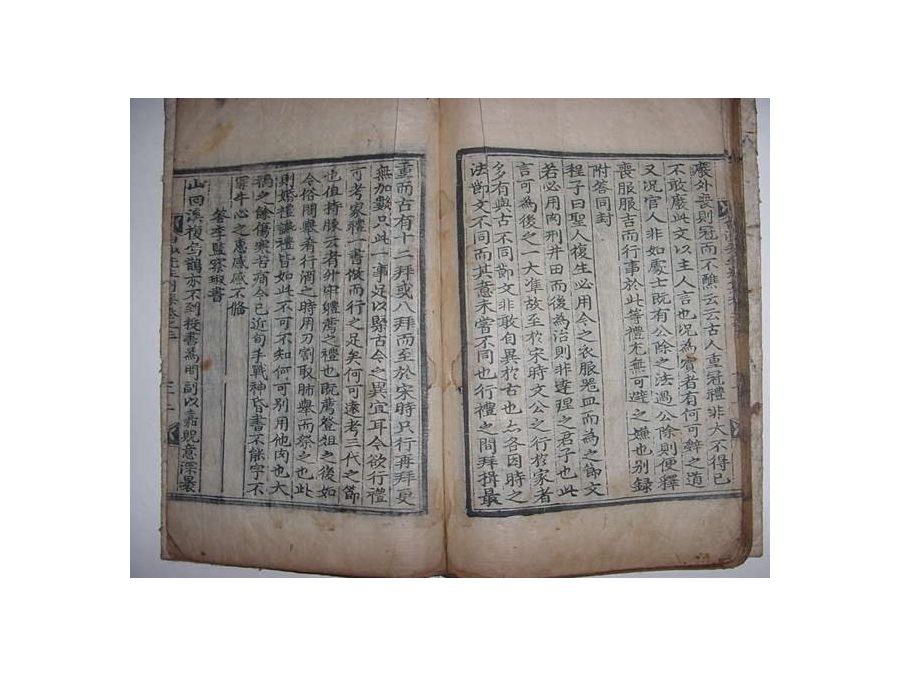 廢外喪則冠而不醮云云古人重冠禮非大不得已
不敢廢此文以主人言也況為賓者有何可辭之道
又況官人非如處士既有公除之法過公除則便釋
喪服服吉而行事於此等禮尤無可避之嫌也別錄
附答同封
程子曰聖人復生必用今之衣服器皿而為之節文
若必用肉刑井田而後為治則非達理之君子也此
言可為後之一大準故至於宋時文公之行於家者
多有與古不同節文非敢自異於古也亦各因時之
法節文不同而其意未嘗不同也行禮之間拜揖最
重而古有十二拜或八拜而至於宋時只行再拜更
無加數只此一事足以緊古今之異宜耳今欲行禮
可考家禮一書倣而行之足矣何可遠考三代之節
也俎特豚云者外面纏薦之禮也既薦登俎之後如
今俗間舉肴行酒之時用刀割取肺舉而祭之也此
則婚禮講禮皆如此不可不知何可別用他肉也大
禍之餘傷樂若病今已近旬手戰神昏書不能字不
穿牛心之慮感感不脩
答李監察瑕書
山回溪複烏鵲亦不到投書為問副以嘉貺意深最